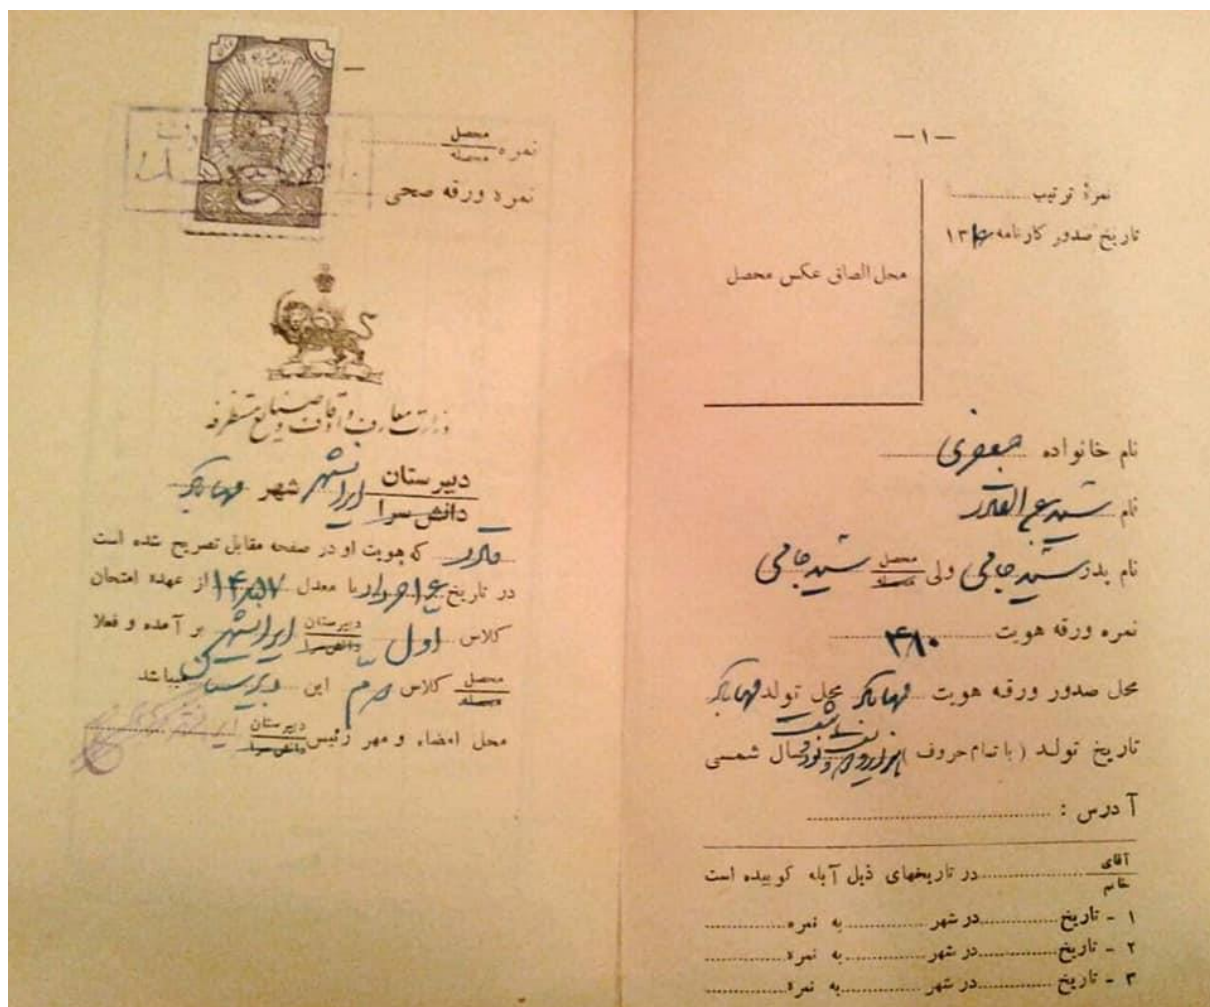 — ۱ —
نمرهٔ ترتیب
تاریخ صدور کارنامه ۱۳
محل الصاق عکس محصل
نام خانواده جعفری
نام سید عبدالقادر
نام پدر سید جامی ولی محصل محصله سید جامی
نمره ورقه هویت ۴۱۰
محل صدور ورقه هویت مهاباد محل تولد مهاباد
تاریخ تولد (با تمام حروف) سال شمسی
آدرس :
آقای خانم در تاریخهای ذیل آبله کوبیده است
۱ - تاریخ در شهر به نمره
۲ - تاریخ در شهر به نمره
۳ - تاریخ در شهر به نمره
نمره محصل محصله
نمره ورقه صحی
وزارت معارف و اوقاف و صنایع مستظرفه
دبیرستان دانش سرا ایرانشهر شهر مهاباد
که هویت او در صفحه مقابل تصریح شده است
در تاریخ خرداد با معدل ۱۴٫۵۷ از عهده امتحان
کلاس اول دبیرستان دانش سرا ایرانشهر بر آمده و فعلا
محصل محصله کلاس دوم این دبیرستان میباشد
محل امضاء و مهر رئیس دبیرستان دانش سرا